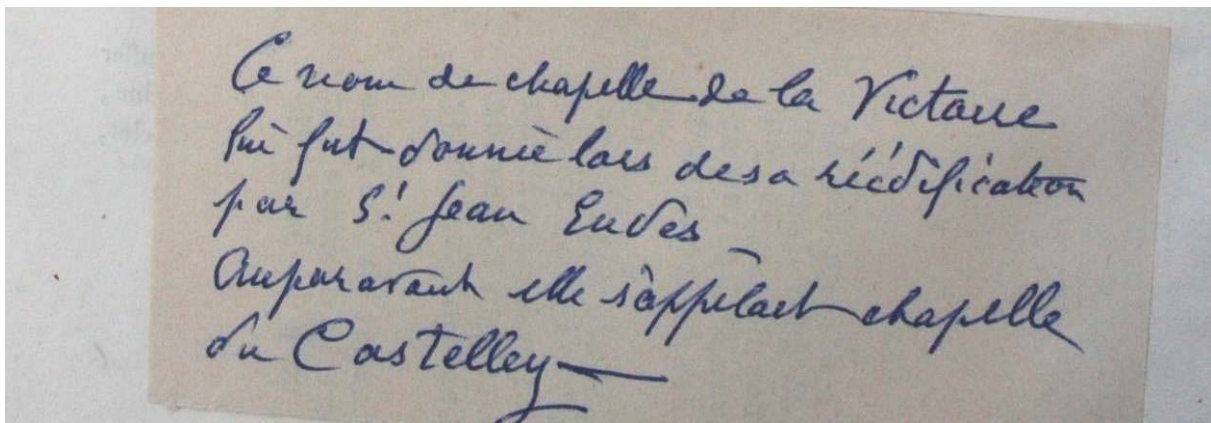 Ce nom de chapelle de la Victoire
lui fut donné lors de sa réédification
par St Jean Eudes _
Auparavant elle s'appelait chapelle
du Castelley —